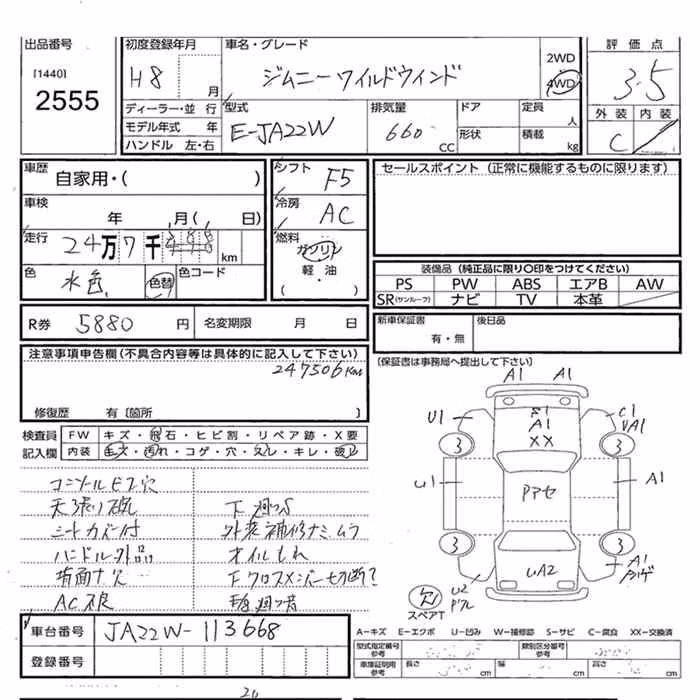 出品番号 初度登録年月 車名・グレード 2WD 評価点
[1440] H8 月 ジムニーワイルドウインド 4WD 3.5
2555 ディーラー・並行 型式 排気量 ドア 定員 人 外装 内装
モデル年式 年 E-JA22W 660 CC 形状 積載 kg C
ハンドル 左・右
車歴 自家用・( ) シフト F5 セールスポイント (正常に機能するものに限ります)
車検 年 月( 日) 冷房 AC
走行 24万7千 km 燃料 ガソリン
軽・油
・( )
色 水色 色替 色コード
装備品 (純正品に限り〇印をつけてください)
PS PW ABS エアB AW
SR(サンルーフ) ナビ TV 本革
R券 5880 円 名変期限 月 日 新車保証書 有・無 後日品
注意事項申告欄(不具合内容等は具体的に記入して下さい) (保証書は事務局へ提出して下さい)
247506Km
修復歴 有〔箇所 〕
検査員 FW キズ・飛石・ヒビ割・リペア跡・X要
記入欄 内装 キズ・汚れ・コゲ・穴・スレ・キレ・破レ
コンソールビス穴
天張り破レ 下廻りサビ
シートカバー付 外装補修ナミムラ
ハンドル外品 オイルもれ
AC不良
A1 A1
U1 A1 XX C1 VA1
3 3
U1 Pアセ A1
3 3
U2 UA2 A1
スペアT
車台番号 JA22W-113668
登録番号
A−キズ E−エクボ U−凹み W−補修跡 S−サビ C−腐食 XX−交換済
型式指定番号 参考 類別区分番号 参考
車庫証明用 参考 長さ cm 幅 cm 高さ cm